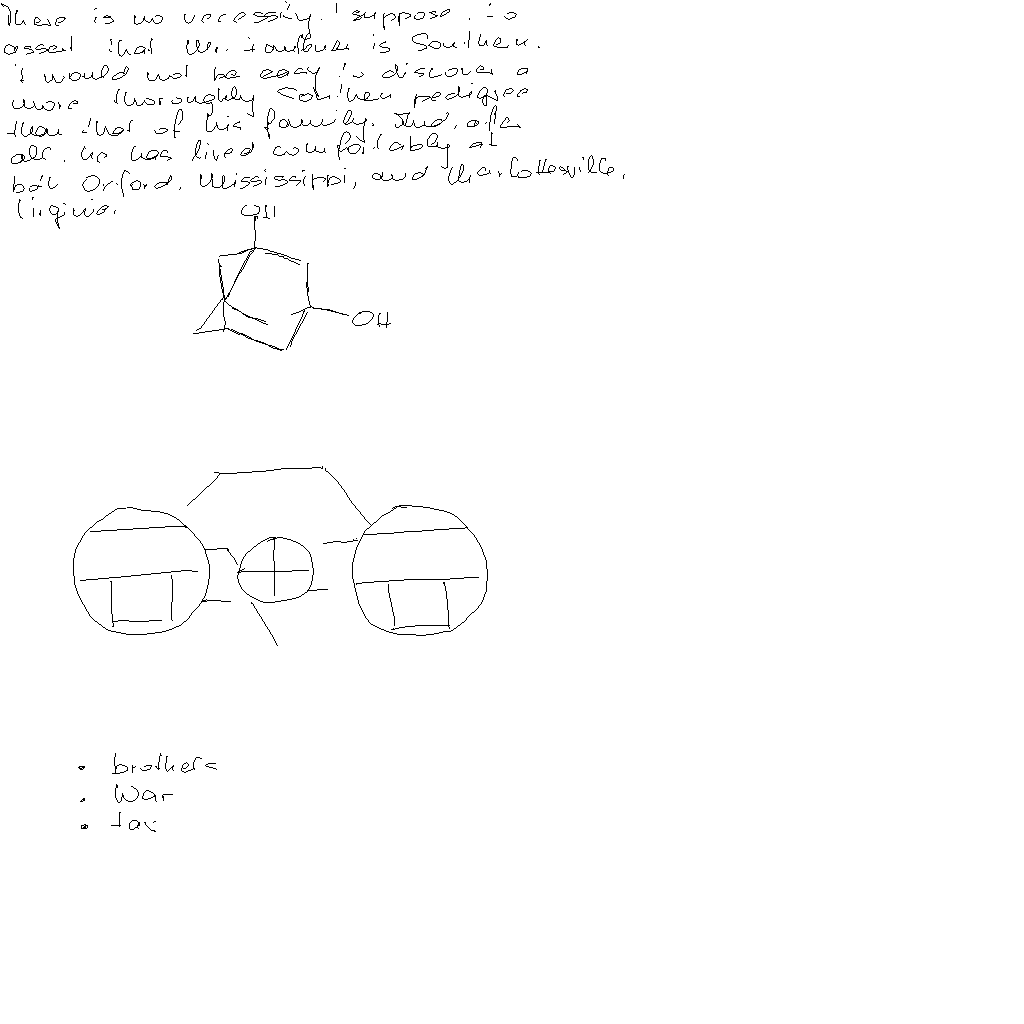 There is no necessity, I suppose, to
assert that Mr. Faulkner is Southern.
It would not be easy to discover a
more thoroughly Southern pedigree
than that of his family. And, after
all, he has lived comfortably at
both Oxford, Mississippi, and Charlottesville,
Virginia.
OH
OH
• brothers
• War
• tax